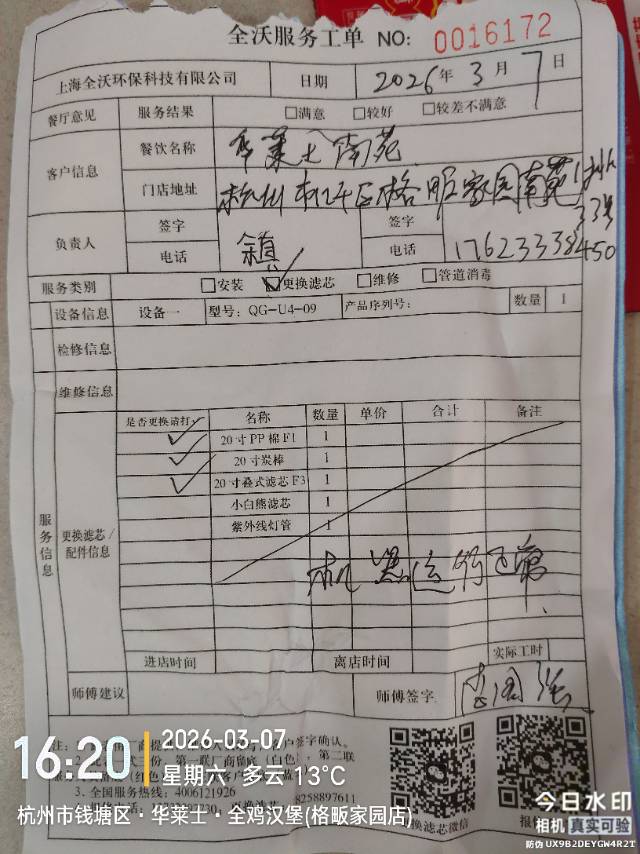 全沃服务工单 NO: 0016172
上海全沃环保科技有限公司 日期 2026年3月7日
餐厅意见 服务结果 □满意 □较好 □较差不满意
客户信息 餐饮名称 华莱士南苑
门店地址 杭州 区格畈家园南苑
33号
负责人 签字 签字
电话 电话 17623338450
服务类别 □安装 ☑更换滤芯 □维修 □管道消毒
设备信息 设备一 型号: QG-U4-09 产品序列号: 数量 1
检修信息
维修信息
服务信息
更换滤芯/配件信息
是否更换请打✓ 名称 数量 单价 合计 备注
✓ 20寸PP棉F1 1
✓ 20寸炭棒 1
✓ 20寸叠式滤芯F3 1
小白熊滤芯 1
紫外线灯管 1
机器运行正常
进店时间 离店时间 实际工时
师傅建议 师傅签字
签字确认。
第一联 留底(白色), 第二联
3. 全国服务热线: 4006121926
8258897611
换滤芯微信
16:20
2026-03-07
星期六 多云 13°C
杭州市钱塘区·华莱士·全鸡汉堡(格畈家园店)
今日水印
相机 真实可验
防伪 UX9B2DEYGW4R2T